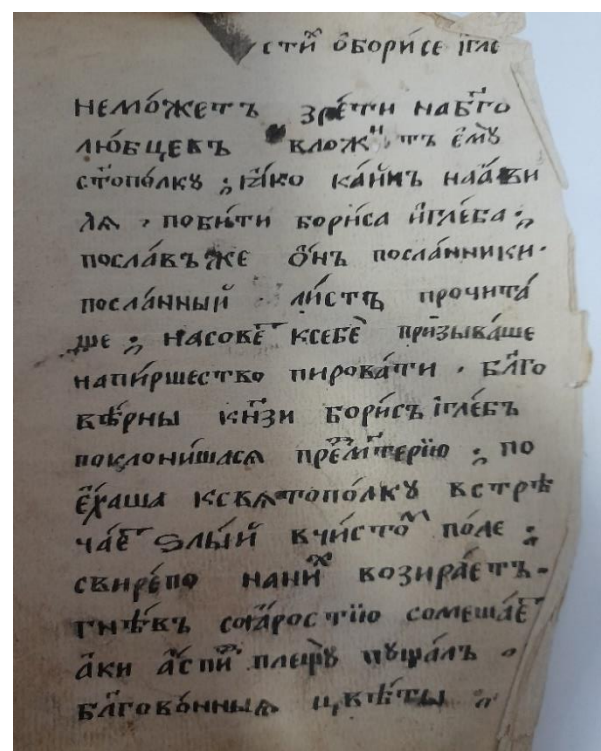 сти́х о́борисе ігле
немо́жетъ зрѣти набг҃о
лю́бцевъ вложитъ е́му
ст҃опо́лку ; ꙗ҆́ко ка́инъ наа́ви
ля , поби́ти бори́са игле́ба ;
посла́въже о́нъ посла́нники .
посла́нный ли́стъ прочита́
ше ; насове́т ксебѐ призыва́ше
напи́ршество пирова́ти . бл҃го
вѣ́рны кн҃зи бори́съ ігле́бъ
поклони́шася пре́д мт҃ерїю ; по
е́хаша ксвятопо́лку встрѣ
ча́ет ѕлы́й вчи́стом по́ле ;
свире́по нани́х возира́етъ .
гнѣ́въ соꙗ́ростїю сомеша́ет
а́ки а́спид
бл҃гово́нныя цвѣ́ты ;